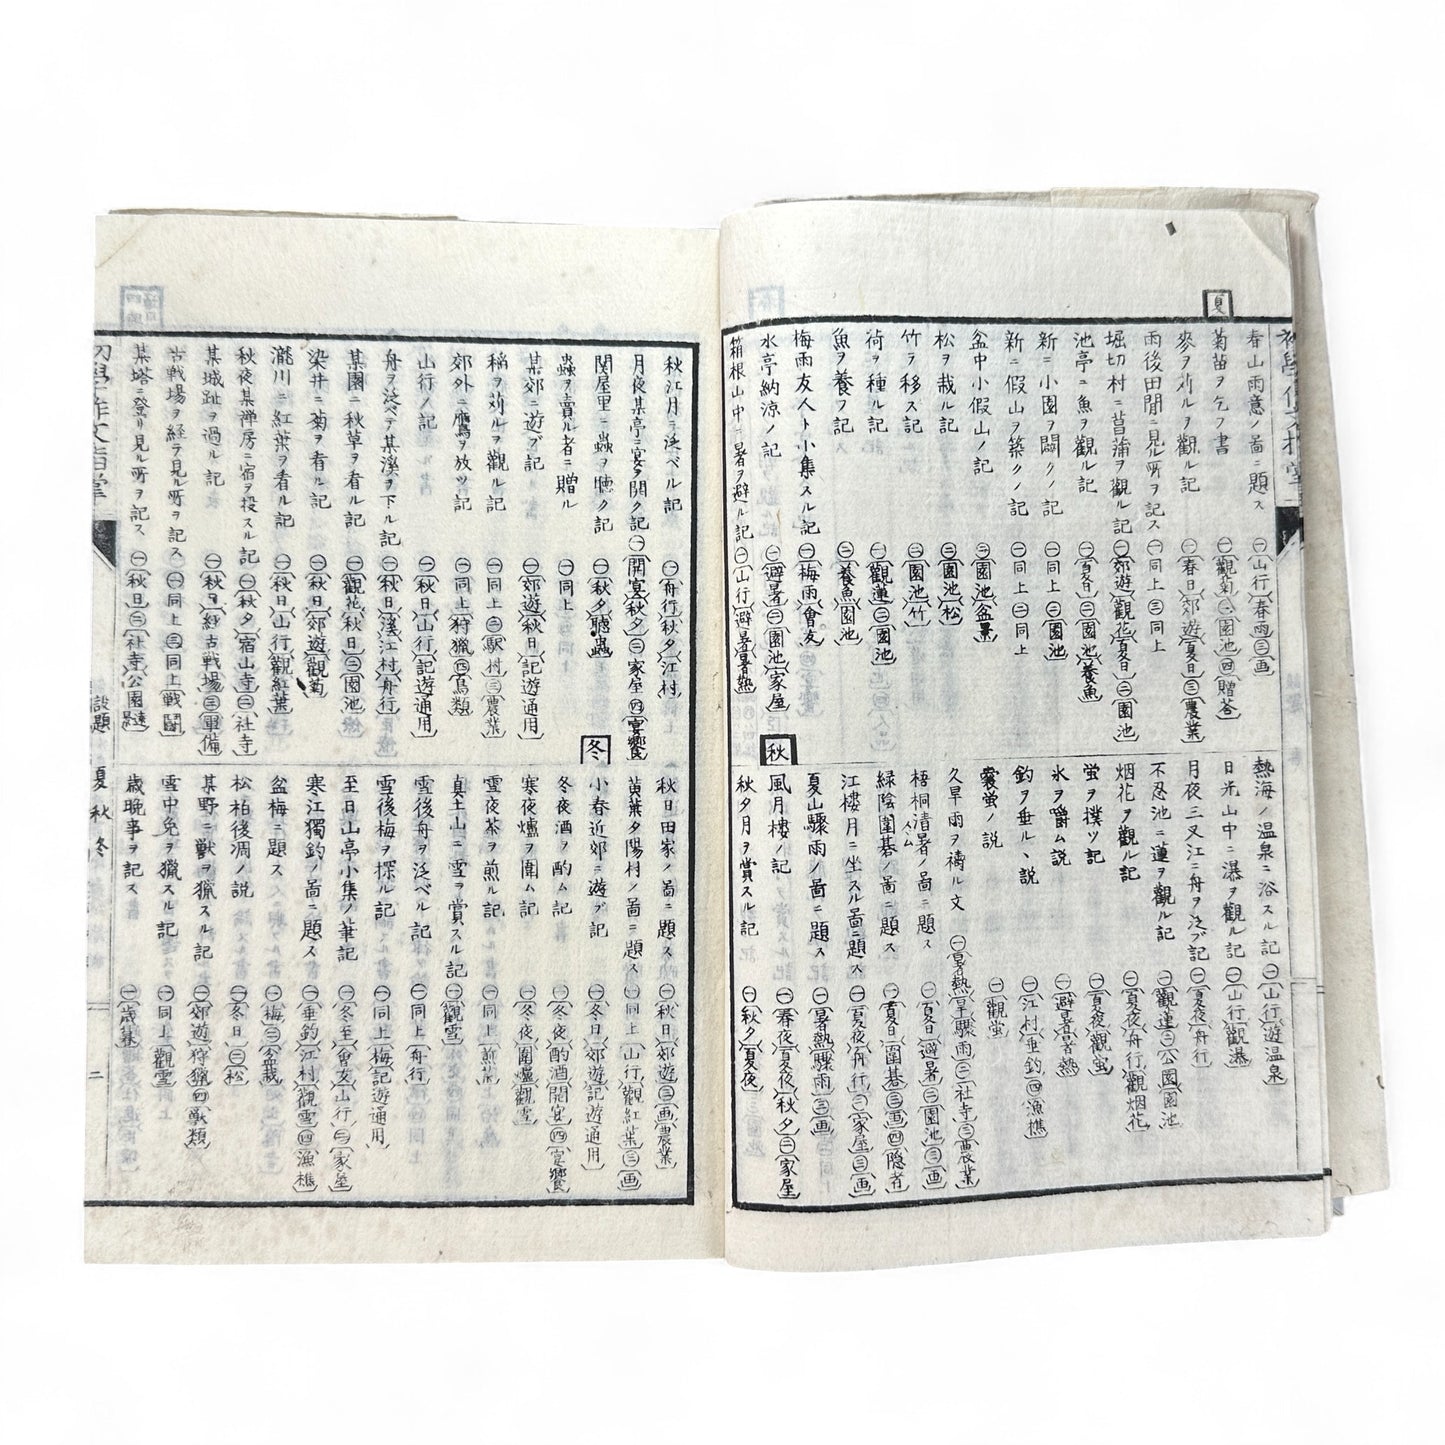 夏
春山雨意ノ啚ニ題ス ㊀(山行)(春雨)㊂(画)
菊苗ヲ乞フ書 ㊀(觀菊)㊁(園池)㊃(贈荅)
麥ヲ刈ルヲ觀ル記 ㊀(春日)(郊遊)(夏日)㊂(農業)
雨後田間ニ見ル所ヲ記ス ㊀同上㊂同上
堀切村ニ菖蒲ヲ觀ル記 ㊀(郊遊)(觀花)(夏日)㊁(園池)
池亭ニ魚ヲ觀ル記 ㊀(夏日)㊁(園池)(養魚)
新ニ小園ヲ闢クノ記 ㊀同上㊁(園池)
新ニ假山ヲ築クノ記 ㊀同上㊁同上
盆中小假山ノ記 ㊁(園池)(盆景)
松ヲ栽ル記 ㊁(園池)(松)
竹ヲ移ス記 ㊁(園池)(竹)
荷ヲ種ル記 ㊀(觀蓮)㊁(園池)
魚ヲ養フ記 ㊁(養魚)(園池)
梅雨友人ト小集スル記 ㊀(梅雨)(會友)
水亭納涼ノ記 ㊀(避暑)㊁(園池)(家屋)
箱根山中ニ暑ヲ避ル記 ㊀(山行)(避暑)(暑熱)
熱海ノ温泉ニ浴スル記 ㊀(山行)(遊温泉)
日光山中ニ瀑ヲ觀ル記 ㊀(山行)(觀瀑)
月夜三叉江ニ舟ヲ泛ブ記 ㊀(夏夜)(舟行)
不忍池ニ蓮ヲ觀ル記 ㊀(觀蓮)㊁(公園)(園池)
烟花ヲ觀ル記 ㊀(夏夜)(舟行)(觀烟花)
蛍ヲ撲ツ記 ㊀(夏夜)(觀蛍)
氷ヲ嚼ム説 ㊀(避暑)(暑熱)
釣ヲ垂ルヽ説 ㊀(江村)(垂釣)㊃(漁樵)
囊蛍ノ説 ㊀(觀蛍)
久旱雨ヲ禱ル文 ㊀(暑熱)(旱)(驟雨)㊁(社寺)㊂(農業)
梧桐清暑ノ啚ニ題ス ㊀(夏日)(避暑)㊁(園池)㊂(画)
緑陰圍碁ノ啚ニ題ス ㊀(夏日)(圍碁)㊂(画)㊃(隠者)
江樓月ニ坐スル啚ニ題ス ㊀(夏夜)(舟行)㊁(家屋)㊂(画)
夏山驟雨ノ啚ニ題ス ㊀(暑熱)(驟雨)㊂(画)
秋
風月樓ノ記 ㊀(春夜)(夏夜)(秋夕)㊁(家屋)
秋夕月ヲ賞スル記 ㊀(秋夕)(夏夜)
秋江月ニ泛ベル記 ㊀(舟行)(秋夕)(江村)
月夜某亭ニ宴ヲ開ク記 ㊀(開宴)(秋夕)㊁(家屋)㊃(宴饗)
関屋里ニ蟲ヲ聴ク記 ㊀(秋夕)(聴蟲)
蟲ヲ賣ル者ニ贈ル ㊀同上
某郊ニ遊ブ記 ㊀(郊遊)(秋日)(記遊通用)
稲ヲ刈ルヲ觀ル記 ㊀同上㊁(駅村)㊂(農業)
郊外ニ鷹ヲ放ツ記 ㊀同上(狩獵)㊃(鳥類)
山行ノ記 ㊀(秋日)(山行)(記遊通用)
舟ヲ泛ベテ某溪ヲ下ル記 ㊀(秋日)(溪)(江村)(舟行)
某園ニ秋草ヲ看ル記 ㊀(觀花)(秋日)㊁(園池)
染井ニ菊ヲ看ル記 ㊀(秋日)(郊遊)(觀菊)
瀧川ニ紅葉ヲ看ル記 ㊀(秋日)(山行)(觀紅葉)
秋夜某禅房ニ宿ヲ投スル記 ㊀(秋夕)(宿山寺)㊁(社寺)
某城趾ヲ過ル記 ㊀(秋日)(経古戦場)㊂(軍備)
古戦場ヲ経テ見ル所ヲ記ス ㊀同上㊂同上(戦闘)
某塔ニ登リ見ル所ヲ記ス ㊀(秋日)㊁(社寺)(公園)
秋日田家ノ啚ニ題ス ㊀(秋日)(郊遊)㊂(画)(農業)
黄葉夕陽村ノ啚ニ題ス ㊀同上(山行)(觀紅葉)㊂(画)
冬
小春近郊ニ遊ブ記 ㊀(冬日)(郊遊)(記遊通用)
冬夜酒ヲ酌ム記 ㊀(冬夜)(酌酒)(開宴)㊃(宴饗)
寒夜爐ヲ圍ム記 ㊀(冬夜)(圍爐)(觀雪)
雪夜茶ヲ煎ル記 ㊀同上(煎茶)
真土山ニ雪ヲ賞スル記 ㊀(觀雪)
雪後舟ヲ泛ベル記 ㊀同上(舟行)
雪後梅ヲ探ル記 ㊀同上(梅)(記遊通用)
至日山亭小集ノ筆記 ㊀(冬至)(會友)(山行)㊁(家屋)
寒江獨釣ノ啚ニ題ス ㊀(垂釣)(江村)(觀雪)㊃(漁樵)
盆梅ニ題ス ㊀(梅)㊁(盆栽)
松柏後凋ノ説 ㊀(冬日)㊁(松)
某野ニ獣ヲ獵スル記 ㊀(郊遊)(狩獵)㊃(獣類)
雪中兔ヲ獵スル記 ㊀同上(觀雪)
歳晩事ヲ記ス ㊀(歳暮)
初學作文指掌
設題
夏秋冬
二